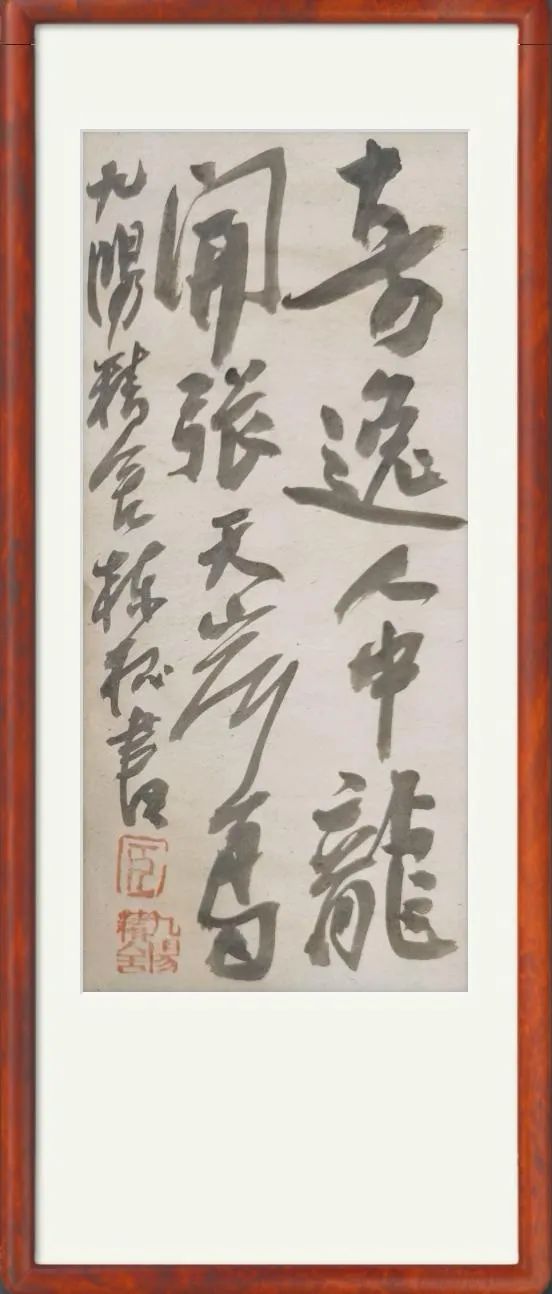 奇逸人中龍
開張天岸馬
九陽精舍栋書
九陽精舍